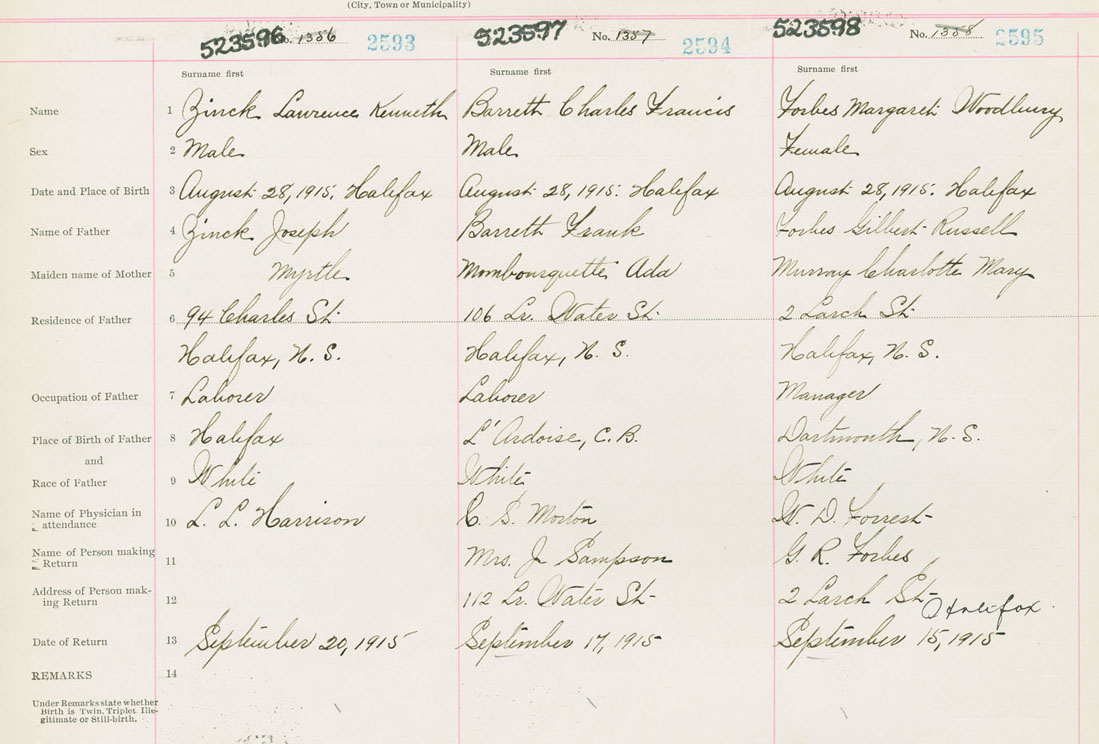 (City, Town or Municipality)
523596 No. 1356 2593 523597 No. 1357 2594 523598 No. 1358 2595
Surname first Surname first Surname first
Name 1 Zinck Lawrence Kenneth Barrett Charles Francis Forbes Margaret Woodbury
Sex 2 Male Male Female
Date and Place of Birth 3 August 28, 1915. Halifax August 28, 1915. Halifax August 28, 1915. Halifax
Name of Father 4 Zinck Joseph Barrett Frank Forbes Gilbert Russell
Maiden name of Mother 5 Myrtle Mombourquette Ada Murray Charlotte Mary
Residence of Father 6 94 Charles St. 106 Lr. Water St. 2 Larch St.
Halifax, N. S. Halifax, N. S. Halifax, N. S.
Occupation of Father 7 Laborer Laborer Manager
Place of Birth of Father 8 Halifax L'Ardoise, C. B. Dartmouth, N. S.
and
Race of Father 9 White White White
Name of Physician in
attendance 10 L. L. Harrison C. S. Morton W. D. Forrest
Name of Person making
Return 11 Mrs. J. Sampson G. R. Forbes
Address of Person mak-
ing Return 12 112 Lr. Water St. 2 Larch St. Halifax
Date of Return 13 September 20, 1915 September 17, 1915 September 15, 1915
REMARKS 14
Under Remarks state whether
Birth is Twin, Triplet, Ille-
gitimate or Still-birth.